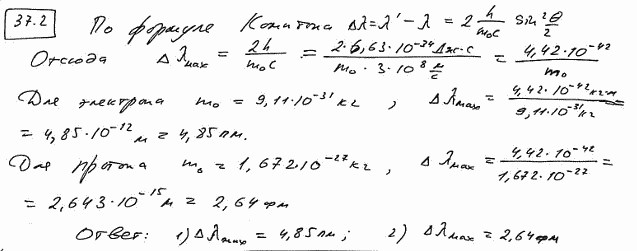 37.2 По формуле Комптона Δλ = λ' - λ = 2 h/(m₀c) sin² θ/2
Отсюда Δλmax = 2h/(m₀c) = (2·6,63·10⁻³⁴ Дж·с)/(m₀·3·10⁸ м/с) = (4,42·10⁻⁴²)/m₀
Для электрона m₀ = 9,11·10⁻³¹ кг, Δλmax = (4,42·10⁻⁴² кг·м)/(9,11·10⁻³¹ кг)
= 4,85·10⁻¹² м = 4,85 пм.
Для протона m₀ = 1,672·10⁻²⁷ кг, Δλmax = (4,42·10⁻⁴²)/(1,672·10⁻²⁷) =
= 2,643·10⁻¹⁵ м = 2,64 фм
Ответ: 1) Δλmax = 4,85 пм; 2) Δλmax = 2,64 фм